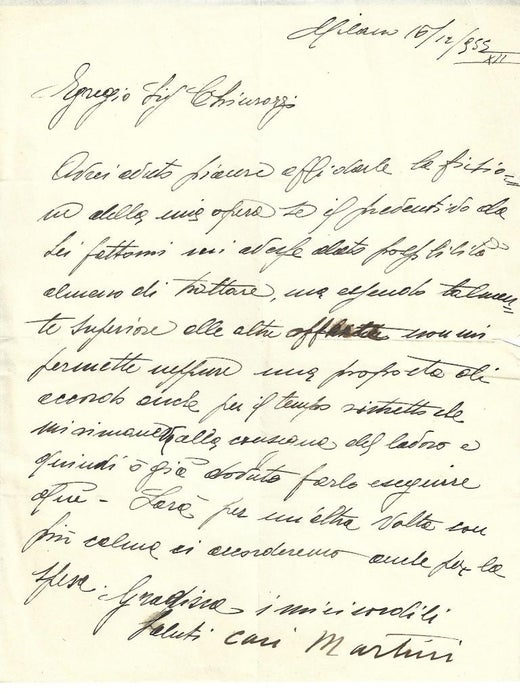 Milano 15/12/933
XII
Egregio Sig Chiurazzi
Avrei avuto piacere affidarle la fusio=
ne della mia opera se il preventivo da
Lei fattomi mi avesse dato possibilità
almeno di trattare, ma essendo talmen=
te superiore alle altre offerte non mi
permette neppure una proposta di
accordo anche per il tempo ristretto che
mi rimane alla consegna del lavoro e
quindi ò già dovuto farlo eseguire
qui - Sarà per un'altra volta con
più calma ci accorderemo anche per la
spesa. Gradisca i miei cordili
saluti